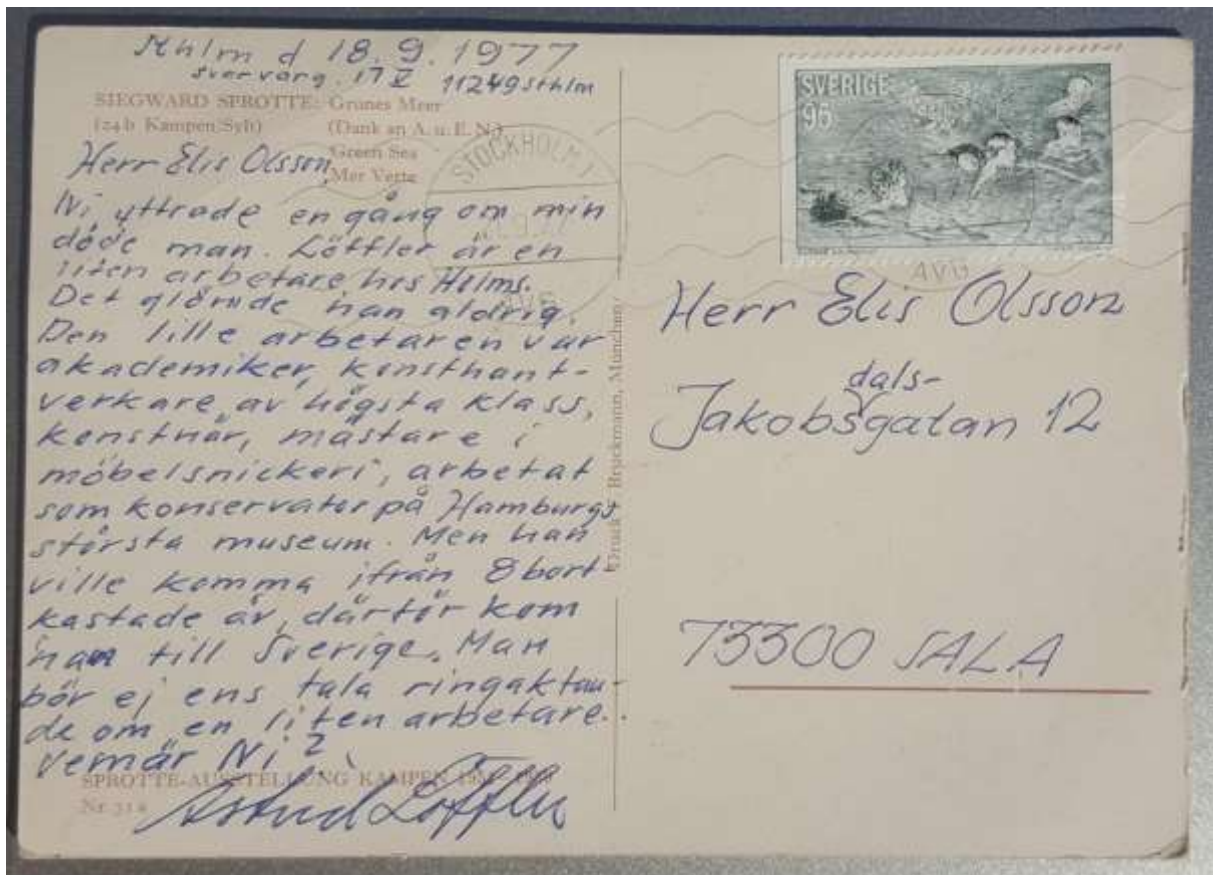 Sthlm d 18.9.1977
Svarvarg. 17 V 11249 Sthlm
SIEGWARD SPROTTE: Grünes Meer
(24b Kampen/Sylt) (Dank an A. u. E. N.)
Green Sea
Mer Verte
Herr Elis Olsson,
Ni yttrade en gång om min
döde man. Löffler är en
liten arbetare hos Holms.
Det glömde han aldrig.
Den lille arbetaren var
akademiker, konsthant-
verkare av högsta klass,
konstnär, mästare i
möbelsnickeri, arbetat
som konservator på Hamburgs
största museum. Men han
ville komma ifrån 8 bort-
kastade år, därför kom
han till Sverige. Man
bör ej ens tala ringaktan-
de om en liten arbetare.
Vem är Ni?
Astrid Löffler
SPROTTE-AUSSTELLUNG KAMPEN
Nr 31a
Druck F. Bruckmann, München
STOCKHOLM 1
AVG
SVERIGE
95
AVG
Herr Elis Olsson
dals-
Jakobsgatan 12
73300 SALA